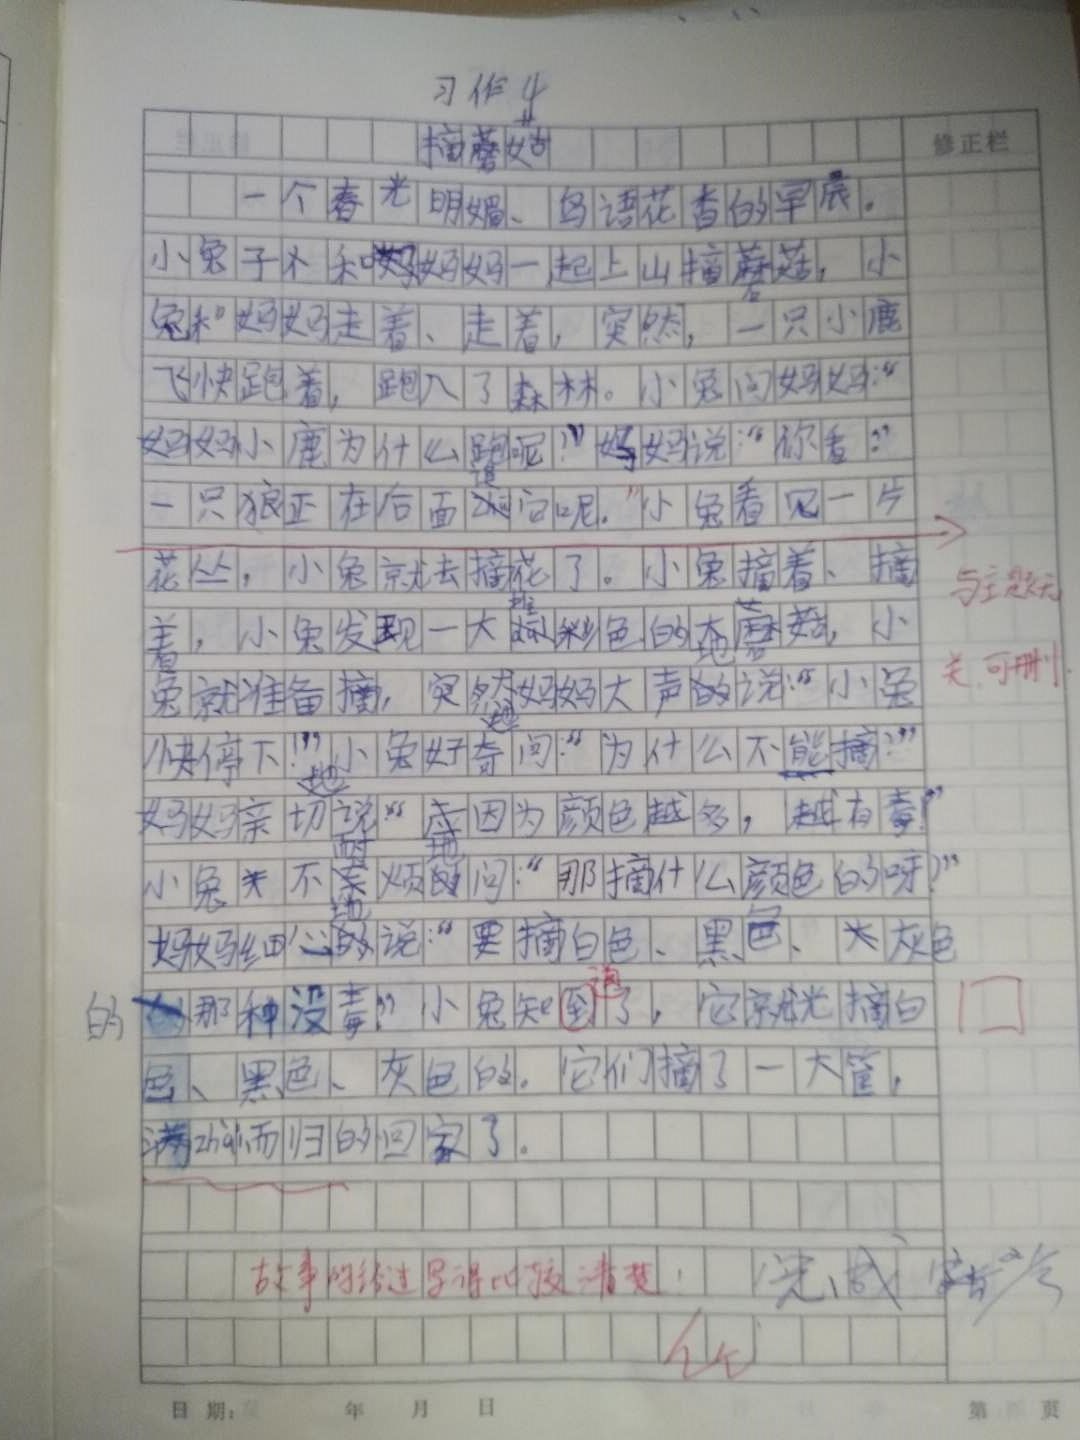 习作4
摘蘑菇
修正栏
一个春光明媚、鸟语花香的早晨。
小兔子和妈妈一起上山摘蘑菇，小
兔和妈妈走着、走着，突然，一只小鹿
飞快跑着，跑入了森林。小兔问妈妈：“
妈妈小鹿为什么跑呢？”妈妈说：“你看：”
一只狼正在后面追它呢。”小兔看见一片
花丛，小兔就去摘花了。小兔摘着、摘
与主题无
着，小兔发现一大堆彩色的蘑菇，小
关，可删
兔就准备摘，突然妈妈大声地说：“小兔
快停下！”小兔好奇地问：“为什么不能摘？”
妈妈亲切地说“因为颜色越多，越有毒！”
小兔不耐烦地问：“那摘什么颜色的呀？”
妈妈细心地说：“要摘白色、黑色、灰色
的那种没毒”小兔知道了，它就光摘白
色、黑色、灰色的。它们摘了一大筐，
满zài而归的回家了。
故事的经过写得比较清楚！
完成
日期： 年 月 日
第 页